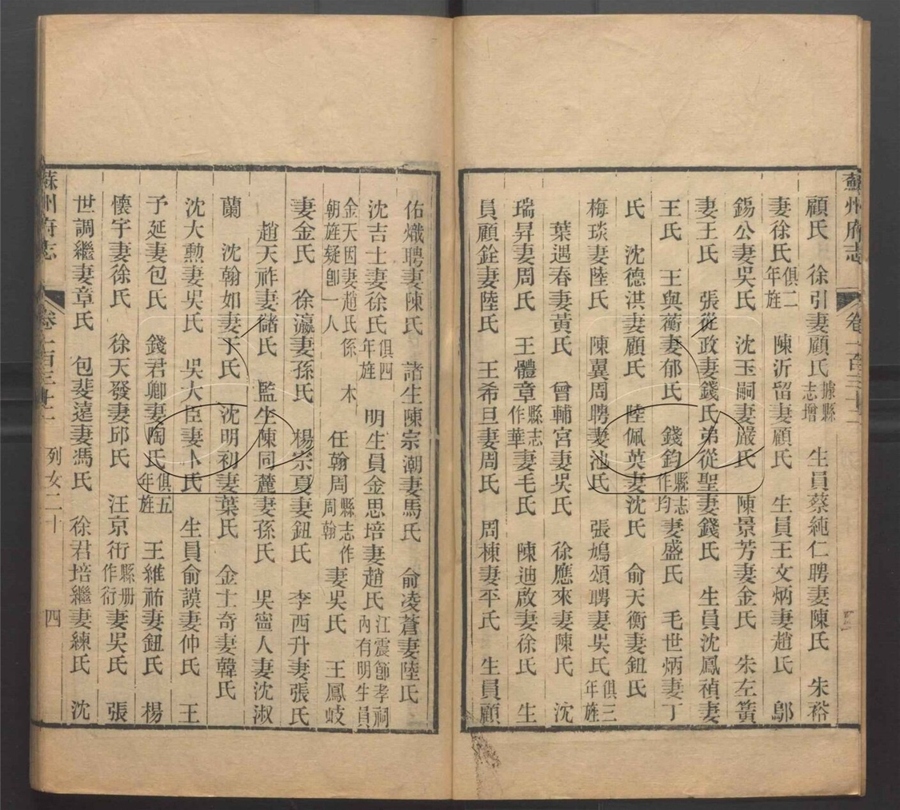 顧氏　徐引妻顧氏據縣志增　生員蔡純仁聘妻陳氏　朱裕
妻徐氏俱二年旌　陳沂留妻顧氏　生員王文炳妻趙氏　鄔
錫公妻吳氏　沈玉嗣妻嚴氏　陳景芳妻金氏　朱左簧
妻王氏　張從政妻錢氏弟從聖妻錢氏　生員沈鳳禎妻
王氏　王與蘅妻郁氏　錢鈞縣志作均妻盛氏　毛世炳妻丁
氏　沈德淇妻顧氏　陸佩英妻沈氏　俞天衡妻鈕氏
梅琰妻陸氏　陳翼周聘妻池氏　張鳩頌聘妻吳氏俱三年旌
葉遇春妻黃氏　曾輔宮妻吳氏　徐應來妻陳氏　沈
瑞昇妻周氏　王體章縣志作華妻毛氏　陳迪啟妻徐氏　生
員顧銓妻陸氏　王希旦妻周氏　周棟妻平氏　生員顧
蘇州府志　卷一百三十二
佑熾聘妻陳氏　諸生陳宗潮妻馬氏　俞凌蒼妻陸氏
沈吉士妻徐氏俱四年旌　明生員金思培妻趙氏江震節孝祠內有明生員
金天因妻趙氏係木朝旌疑卽一人　任翰周縣志作周翰妻吳氏　王鳳岐
妻金氏　徐瀛妻孫氏　楊宗夏妻鈕氏　李西升妻張氏
趙天祚妻儲氏　監生陳同麓妻孫氏　吳甯人妻沈淑
蘭　沈翰如妻于氏　沈明利妻葉氏　金士奇妻韓氏
沈大勲妻吳氏　吳大臣妻卜氏　生員俞謨妻仲氏　王
予延妻包氏　錢君卿妻陶氏俱五年旌　王維祐妻鈕氏　楊
懷宇妻徐氏　徐天發妻邱氏　汪京衎縣册作衍妻吳氏　張
世調繼妻章氏　包斐遠妻馮氏　徐君培繼妻練氏　沈
蘇州府志　卷一百三十二　列女二十　四